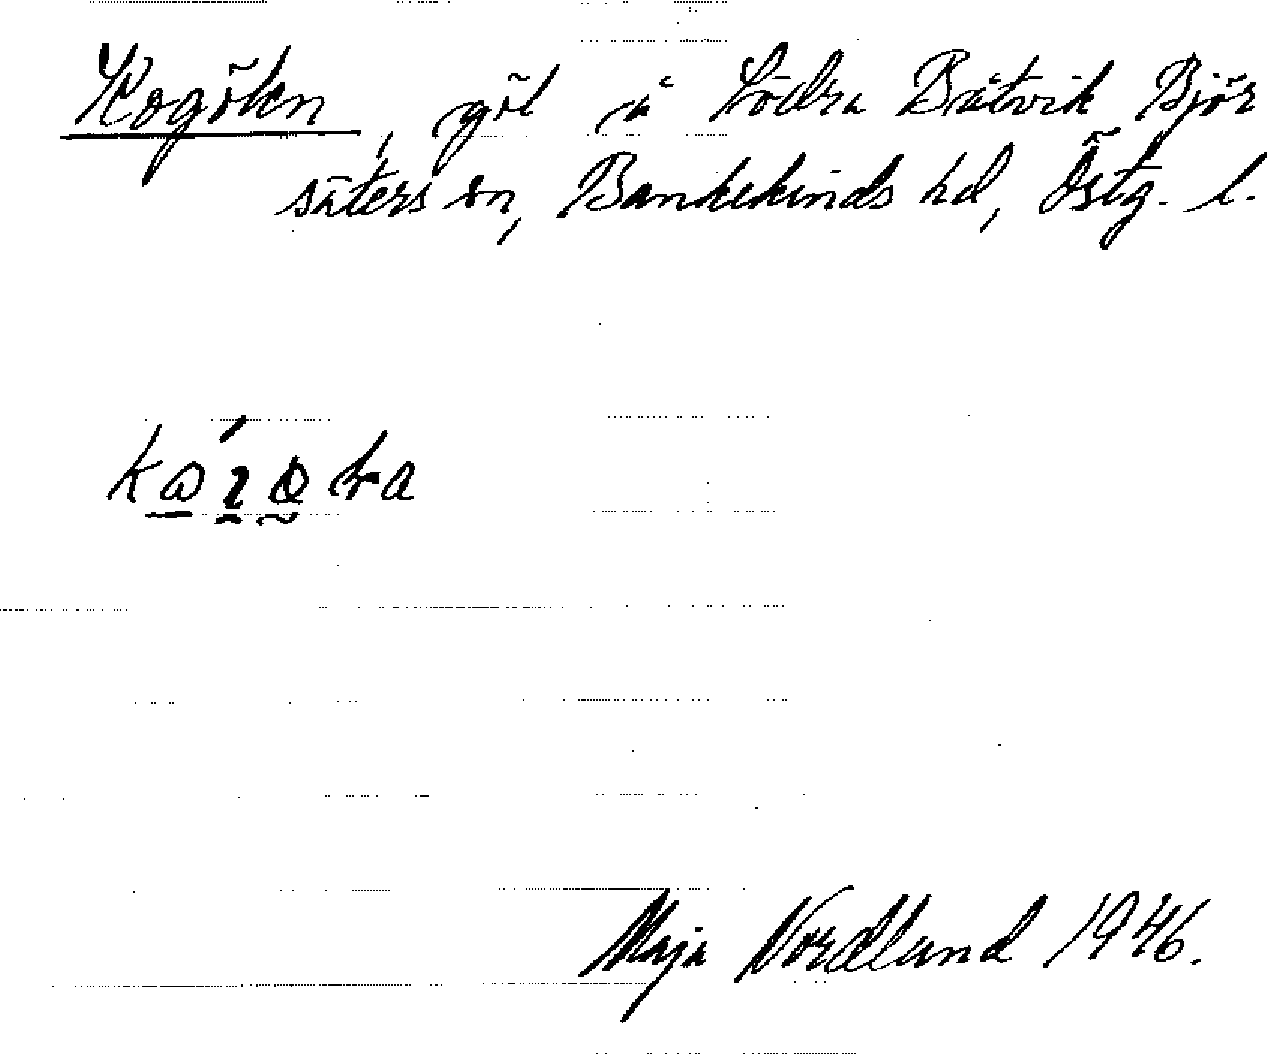 Kogölen, göl å Södra Båtvik Björ
säters sn, Bankekinds hd, Östg. l.
Maja Nordlund 1946.